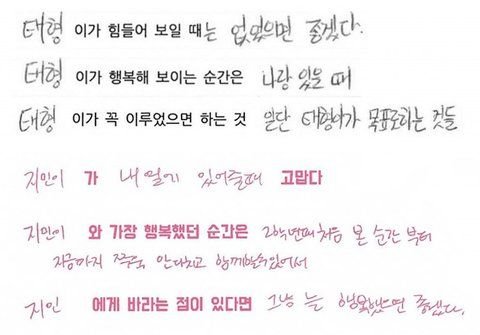 태형 이가 힘들어 보일 때는 없었으면 좋겠다.
태형 이가 행복해 보이는 순간은 나랑 있을 때
태형 이가 꼭 이루었으면 하는 것 일단 태형이가 목표로하는 것들
지민이 가 내 옆에 있어줄때 고맙다
지민이 와 가장 행복했던 순간은 2학년때 처음 본 순간 부터
지금까지 쭈욱 안다치고 함께할수있어서
지민 에게 바라는 점이 있다면 그냥 늘 행복했으면 좋겠다.